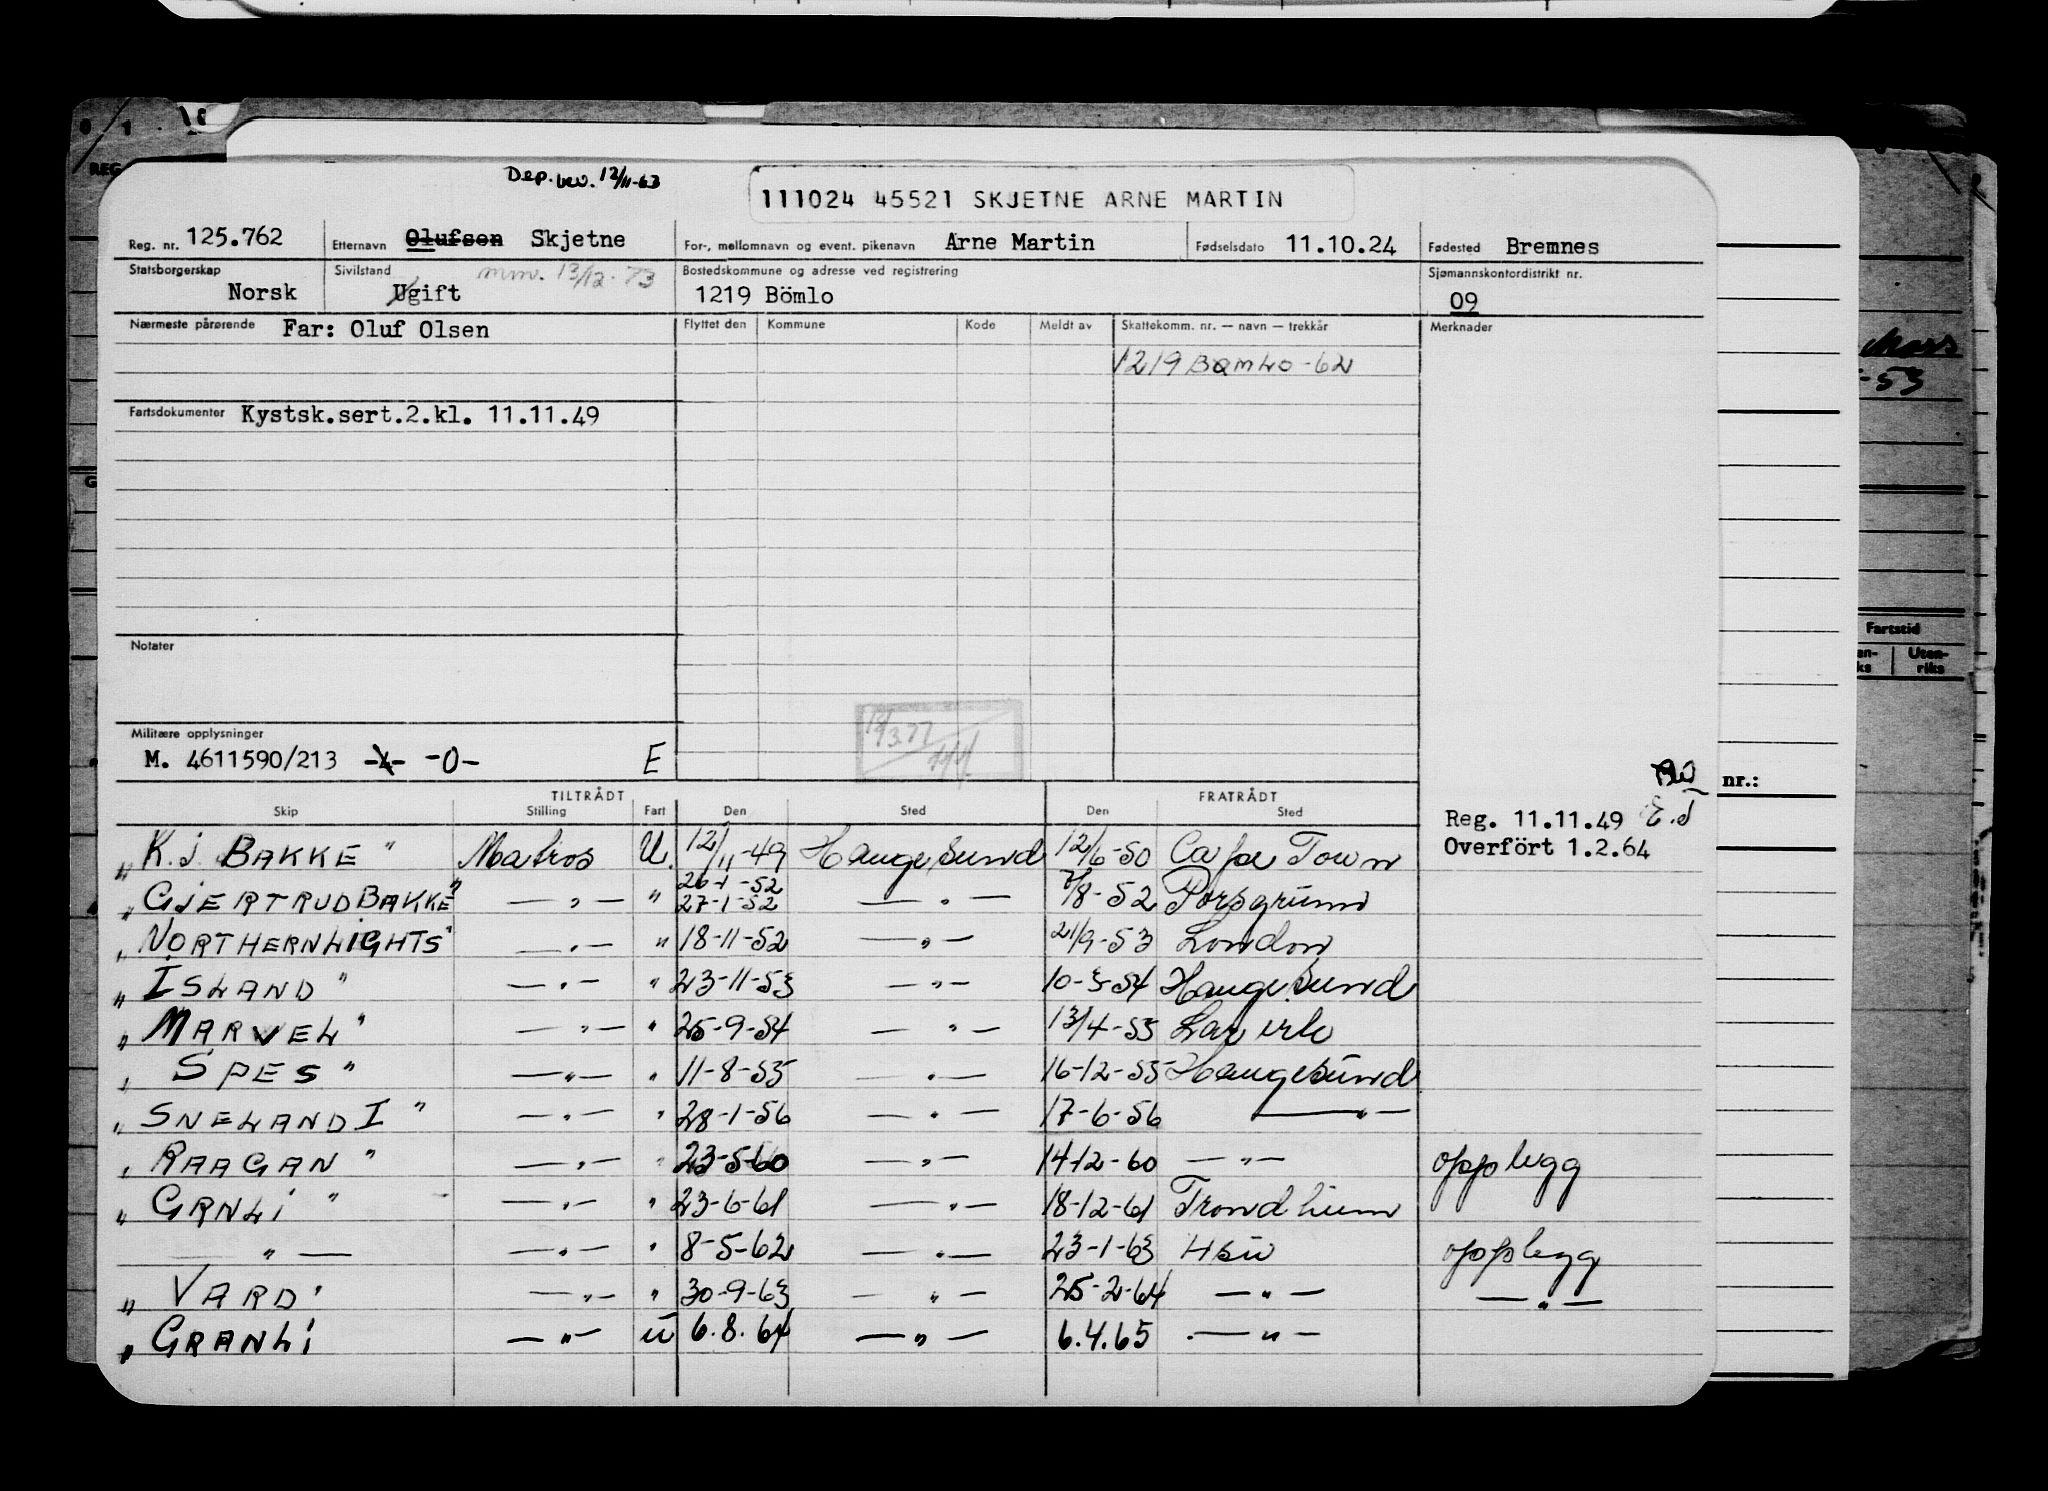 Dep. bev. 12/11-63
111024 45521 SKJETNE ARNE MARTIN
REG
Reg. nr. 125.762 Etternavn Olufsen Skjetne For-, mellomnavn og event. pikenavn Arne Martin Fødselsdato 11.10.24 Fødested Bremnes
Statsborgerskap Norsk Sivilstand Ugift 13/12-73 Bostedskommune og adresse ved registrering 1219 Bömlo Sjømannskontordistrikt nr. 09
Nærmeste pårørende Far: Oluf Olsen Flyttet den Kommune Kode Meldt av Skattekomm. nr. — navn — trekkår Merknader
1219 BØMLO -62
-53
Fartsdokumenter Kystsk.sert.2.kl. 11.11.49
Notater
Fartstid
Uten-
riks
Militære opplysninger
M. 4611590/213 -4- -0- E
nr.:
TILTRÅDT FRATRÅDT
Skip Stilling Fart Den Sted Den Sted
Reg. 11.11.49
Overfört 1.2.64
" K.J. BAKKE " Matros U. 12/11-49 Haugesund 12/6-50 Cape Town
" GJERTRUD BAKKE " — " — " 26-1-52 27-1-52 — " — 7/8-52 Porsgrunn
" NORTHERN LIGHTS " — " — " 18-11-52 — " — 21/9-53 London
" ISLAND " — " — " 23-11-53 — " — 10-3-54 Haugesund
" MARVEL " — " — " 25-9-54 — " — 13/4-55 Larvik
" SPES " — " — " 11-8-55 — " — 16-12-55 Haugesund
" SNELAND I " — " — " 28-1-56 — " — 17-6-56 — " —
" RAAGAN " — " — " 23-5-60 — " — 14-12-60 — " — opplegg
" GRNLI " — " — " 23-6-61 — " — 18-12-61 Trondheim
— " — — " — " 8-5-62 — " — 23-1-63 Hsu opplegg
" VARD " — " — " 30-9-63 — " — 25-2-64 — " — — " —
" GRANLI — " — u 6.8.64 — " — 6.4.65 — " —